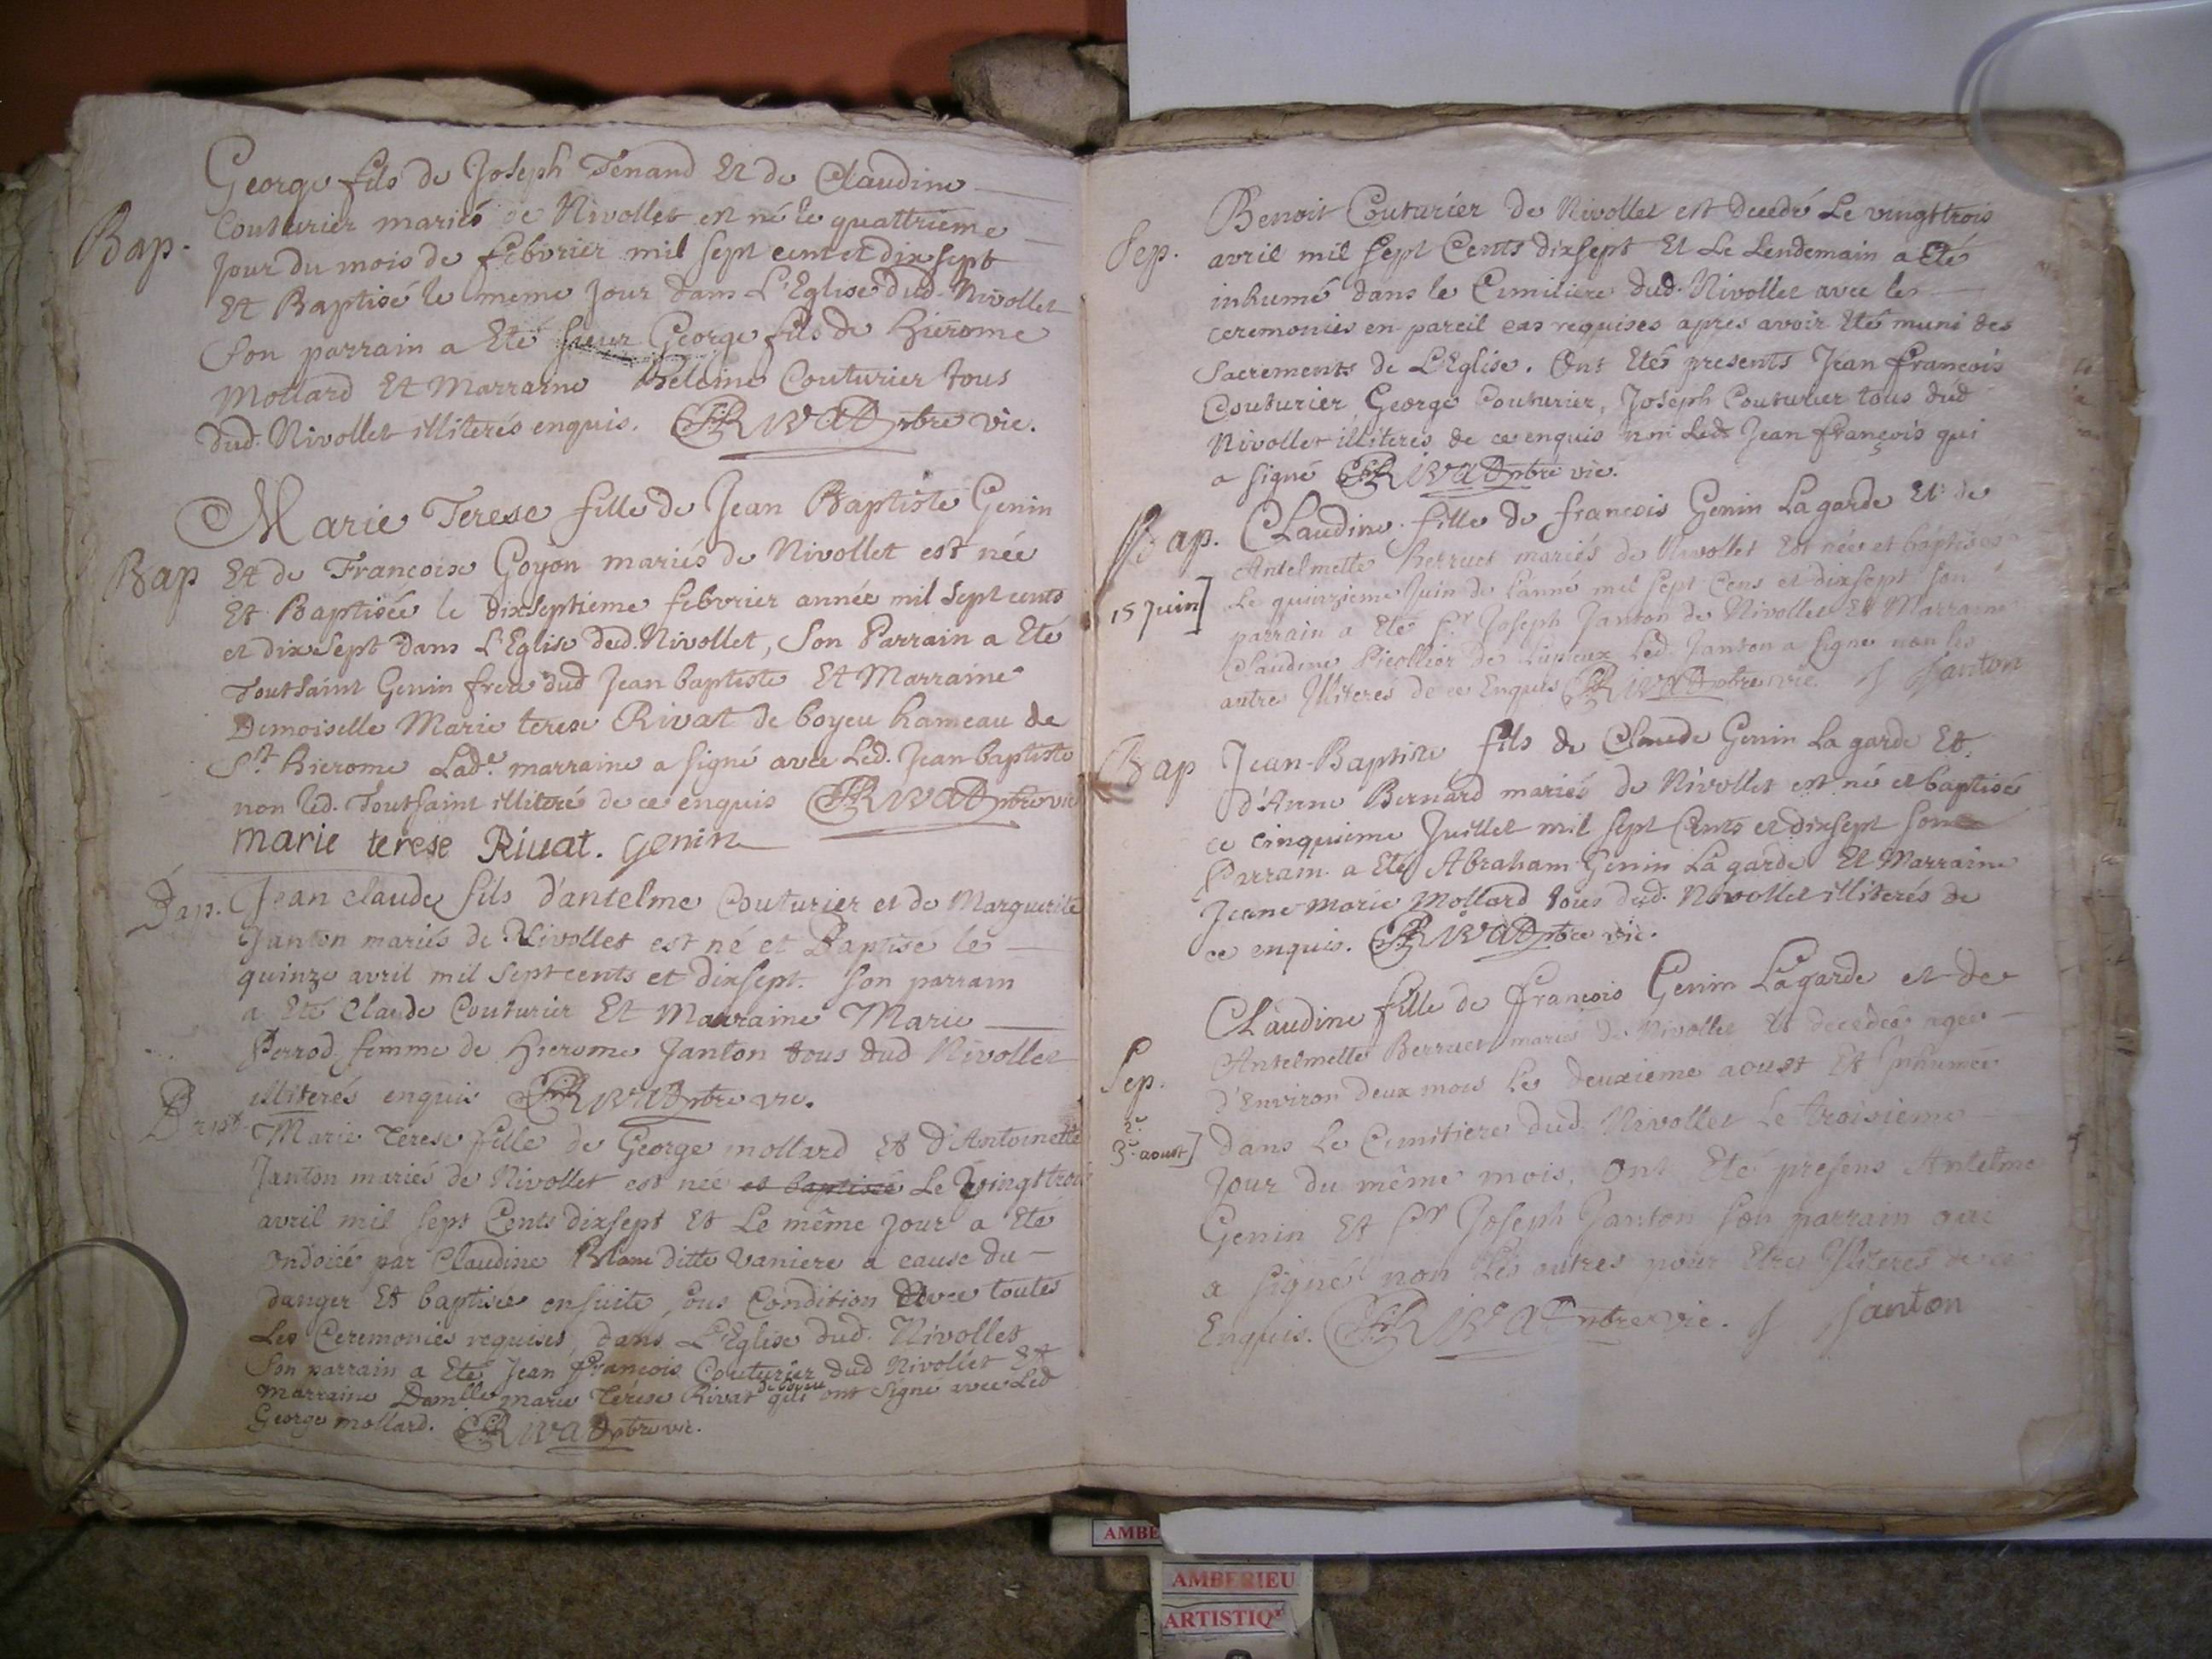 George fils de Joseph Tenand Et de Claudine
Bap. Couturier mariés de Nivollet est né le quattrieme
Jour du mois de febvrier mil sept cent et dix sept
Et Baptisé le meme Jour dans L'Eglise dud. Nivollet
Son parrain a Eté George fils de Hierome
Mollard Et Marraine Couturier tous
dud. Nivollet illiterés enquis. Rivat ptre vic.
Marie Terese fille de Jean Baptiste Genin
Bap Et de Francoise Goyon mariés de Nivollet est née
Et Baptisée le dixseptieme febvrier année mil sept cents
et dix sept dans L'Eglise dud. Nivollet, Son Parrain a Eté
Toutsaint Genin frere dud Jean baptiste Et Marraine
Demoiselle Marie terese Rivat de boyeu hameau de
St. hierome Lade. marraine a signé avec Led. Jean baptiste
non led. Toutsaint illiteré de ce enquis Rivat ptre vic
marie terese Riuat. genin
Bap. Jean claude fils d'antelme Couturier et de Marguerite
Janton mariés de Nivollet est né et Baptisé le
quinze avril mil sept cents et dixsept. Son parrain
a Eté Claude Couturier Et Marraine Marie
Perrod femme de hierome Janton tous dud Nivollet
illiterés enquis Rivat ptre vic.
Bapt. Marie Terese fille de George mollard Et d'Antoinette
Janton mariés de Nivollet est née et baptisée Le vingttrois
avril mil sept Cents dixsept Et Le même jour a Eté
ondoiée par Claudine Blanc ditte vaniere a cause du
danger Et baptisée ensuite sous Condition avec toutes
Les Ceremonies requises, dans L'Eglise dud. Nivollet
Son parrain a Eté Jean François Couturier dud Nivollet Et
marraine Damlle marie Terese Rivat de boyeu qui ont signé avec Led
George mollard. Rivat ptre vic.
Benoit Couturier de Nivollet est decedé Le vingttrois
Sep. avril mil sept Cents dixsept Et Le Lendemain a Eté
inhumé dans le Cimitiere dud. Nivollet avec les
ceremonies en pareil cas requises apres avoir Eté muni des
Sacrements de L'Eglise. Ont Etés presents Jean François
Couturier, George Couturier, Joseph Couturier tous dud
Nivollet illiteres de ce enquis non Led. Jean françois qui
a signé Rivat ptre vic.
Bap. Claudine fille de francois Genin Lagarde Et de
Antelmette Berruet mariés de Nivollet Est née et baptisée
15 Juin] Le quinzieme Juin de l'anné mil sept Cens et dixsept son
parrain a Eté Sr. Joseph Janton de Nivollet Et Marraine
Claudine de Led. Janton a signe non les
autres Illiterés de ce Enquis Rivat ptre vic. J Janton
Bap Jean-Baptiste fils de Claude Genin La garde Et.
d'Anne Bernard mariés de Nivollet est né et baptisé
ce cinquieme Juillet mil sept Cents et dixsept son
Parrain a Eté Abraham Genin La garde Et Marraine
Jeane Marie Mollard tous dud. Nivollet illiterés de
ce enquis. Rivat ptre vic.
Claudine fille de François Genin Lagarde et de
Antelmette Berruet mariés de Nivollet Est decedée agée
Sep. d'Environ deux mois Le deuxieme aoust Et Inhumée
2e.
3e. aoust] dans Le Cimitiere dud. Nivollet Le troisieme
Jour du même mois. Ont Eté presens Antelme
Genin Et Sr Joseph Janton son parrain qui
a signé non Les autres pour Etre Illiteres de ce
Enquis. Rivat ptre vic. J Janton
AMBE
AMBERIEU
ARTISTIQ